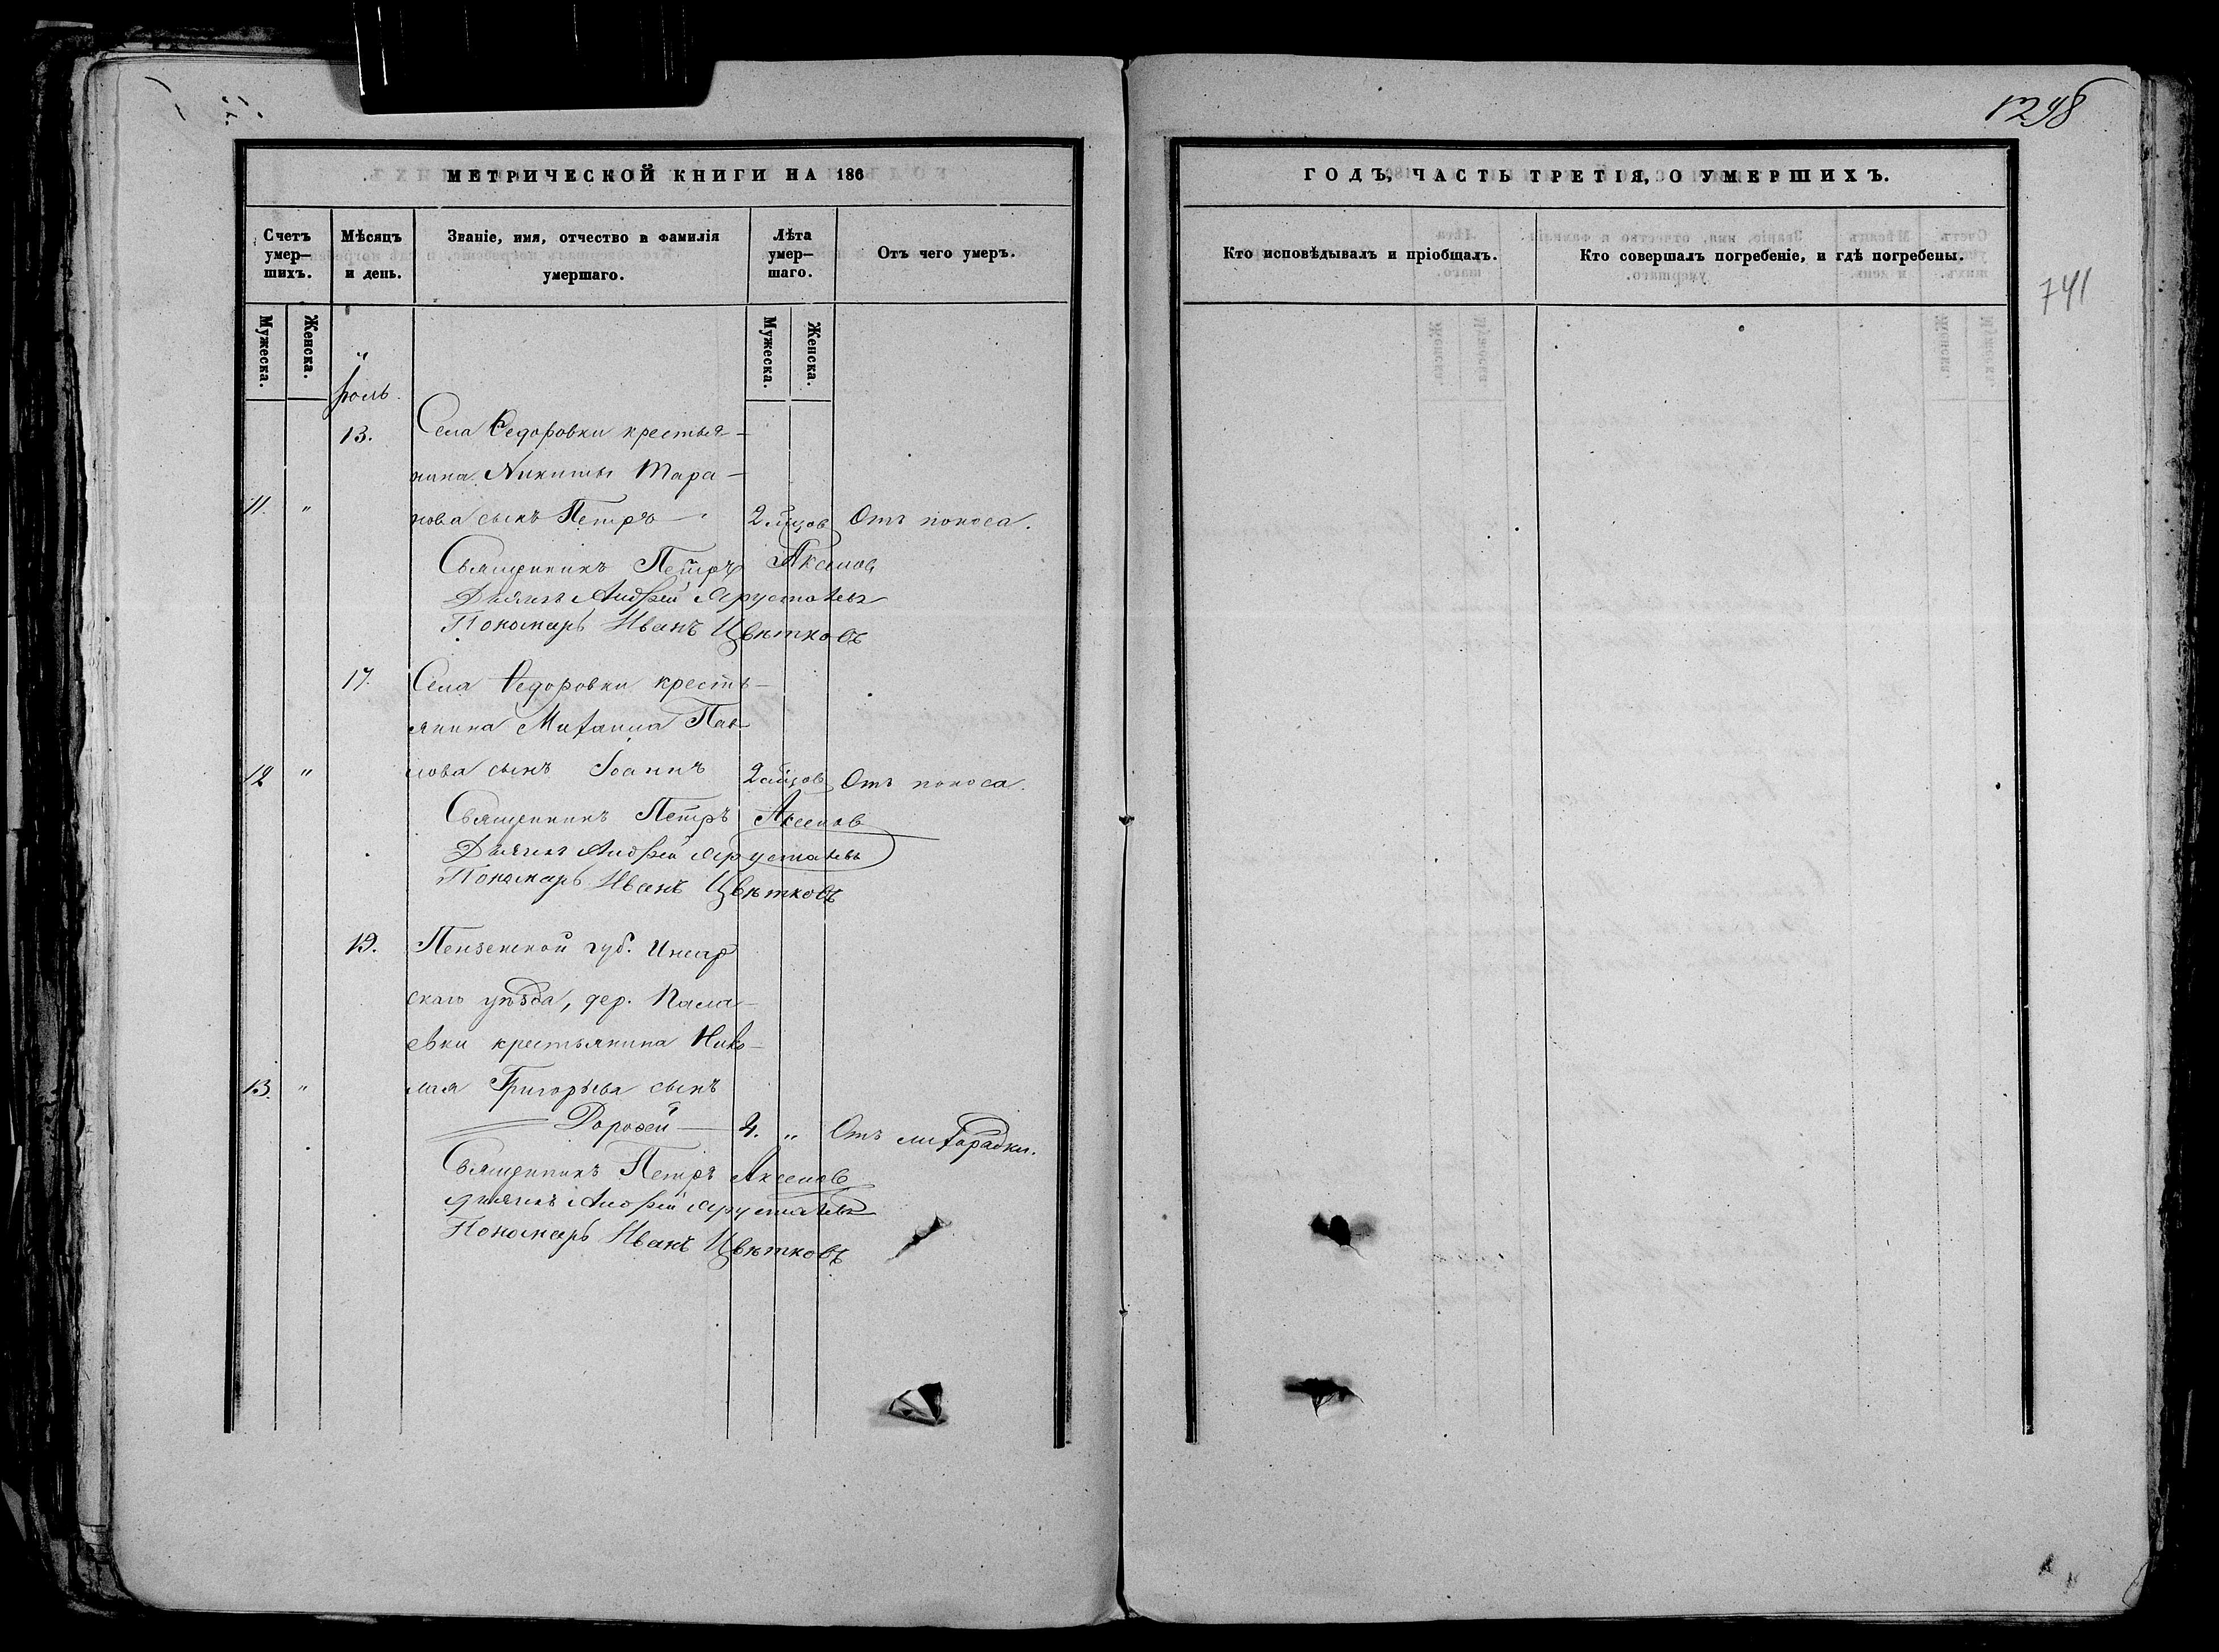 1248
741
МЕТРИЧЕСКОЙ КНИГИ НА 186
ГОДЪ, ЧАСТЬ ТРЕТІЯ, О УМЕРШИХЪ.
Счетъ умер-шихъ.
Мѣсяцъ и день.
Званіе, имя, отчество и фамилія умершаго.
Лѣта умер-шаго.
Отъ чего умеръ.
Кто исповѣдывалъ и пріобщалъ.
Кто совершалъ погребеніе, и гдѣ погребены.
Мужеска.
Женска.
Мужеска.
Женска.
13. Села Ѳедоровки крестья-
нина Никиты Тара-
11. " нова сынъ Петръ 2 Отъ поноса.
Священникъ Петръ Аксенов
Дьячекъ Андрей
Пономарь Иванъ Цвѣтковъ
17. Села Ѳедоровки кресть-
янина Михаила Пав-
12 " лова сынъ Іоаннъ 2 Отъ поноса.
Священникъ Петръ Аксенов
Дьячекъ Андрей
Пономарь Иванъ Цвѣтковъ
19. Пензенской губ. Инсар
скаго уѣзда, дер.
евки крестьянина Нико-
13. " лая Григорьева сынъ
Дороѳей 4. " Отъ лихорадки.
Священникъ Петръ Аксенов
Дьячекъ Андрей
Пономарь Иванъ Цвѣтковъ